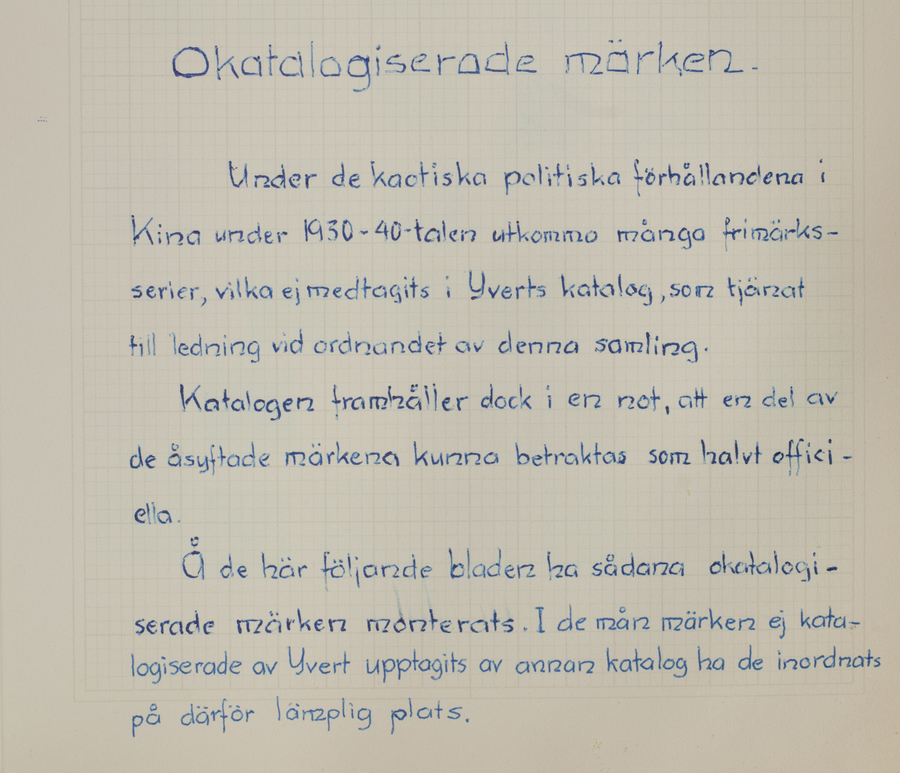 Okatalogiserade märken.
Under de kaotiska politiska förhållandena i
Kina under 1930-40-talen utkommo många frimärks-
serier, vilka ej medtagits i Yverts katalog, som tjänat
till ledning vid ordnandet av denna samling.
Katalogen framhåller dock i en not, att en del av
de åsyftade märkena kunna betraktas som halvt offici-
ella.
Å de här följande bladen ha sådana okatalogi-
serade märken monterats. I de mån märken ej kata-
logiserade av Yvert upptagits av annan katalog ha de inordnats
på därför lämplig plats.